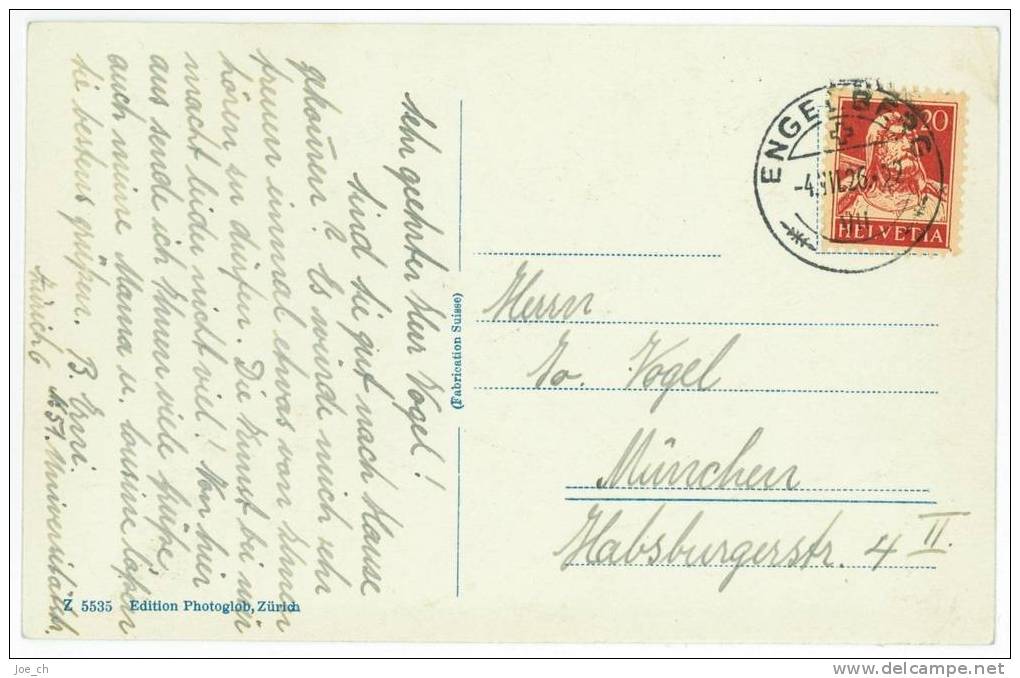 Sehr geehrter Herr Vogel!
Sind Sie gut nach Hause
gekommen? Es würde mich sehr
freuen einmal etwas von Ihnen
hören zu dürfen. Die Kunst bei mir
macht leider nicht viel! Von hier
aus sende ich Ihnen viele Grüße,
auch meine Mama u. Cousine lassen
Sie bestens grüßen. B. Erni.
Zürich 6
No 51. Universitätstr.
Z 5535 Edition Photoglob, Zürich
(Fabrication Suisse)
ENGELBERG
-4. VII. 26
20
HELVETIA
Herrn
Vogel
München
Habsburgerstr. 4 II.
joe_ch
http://www.delcampe.net